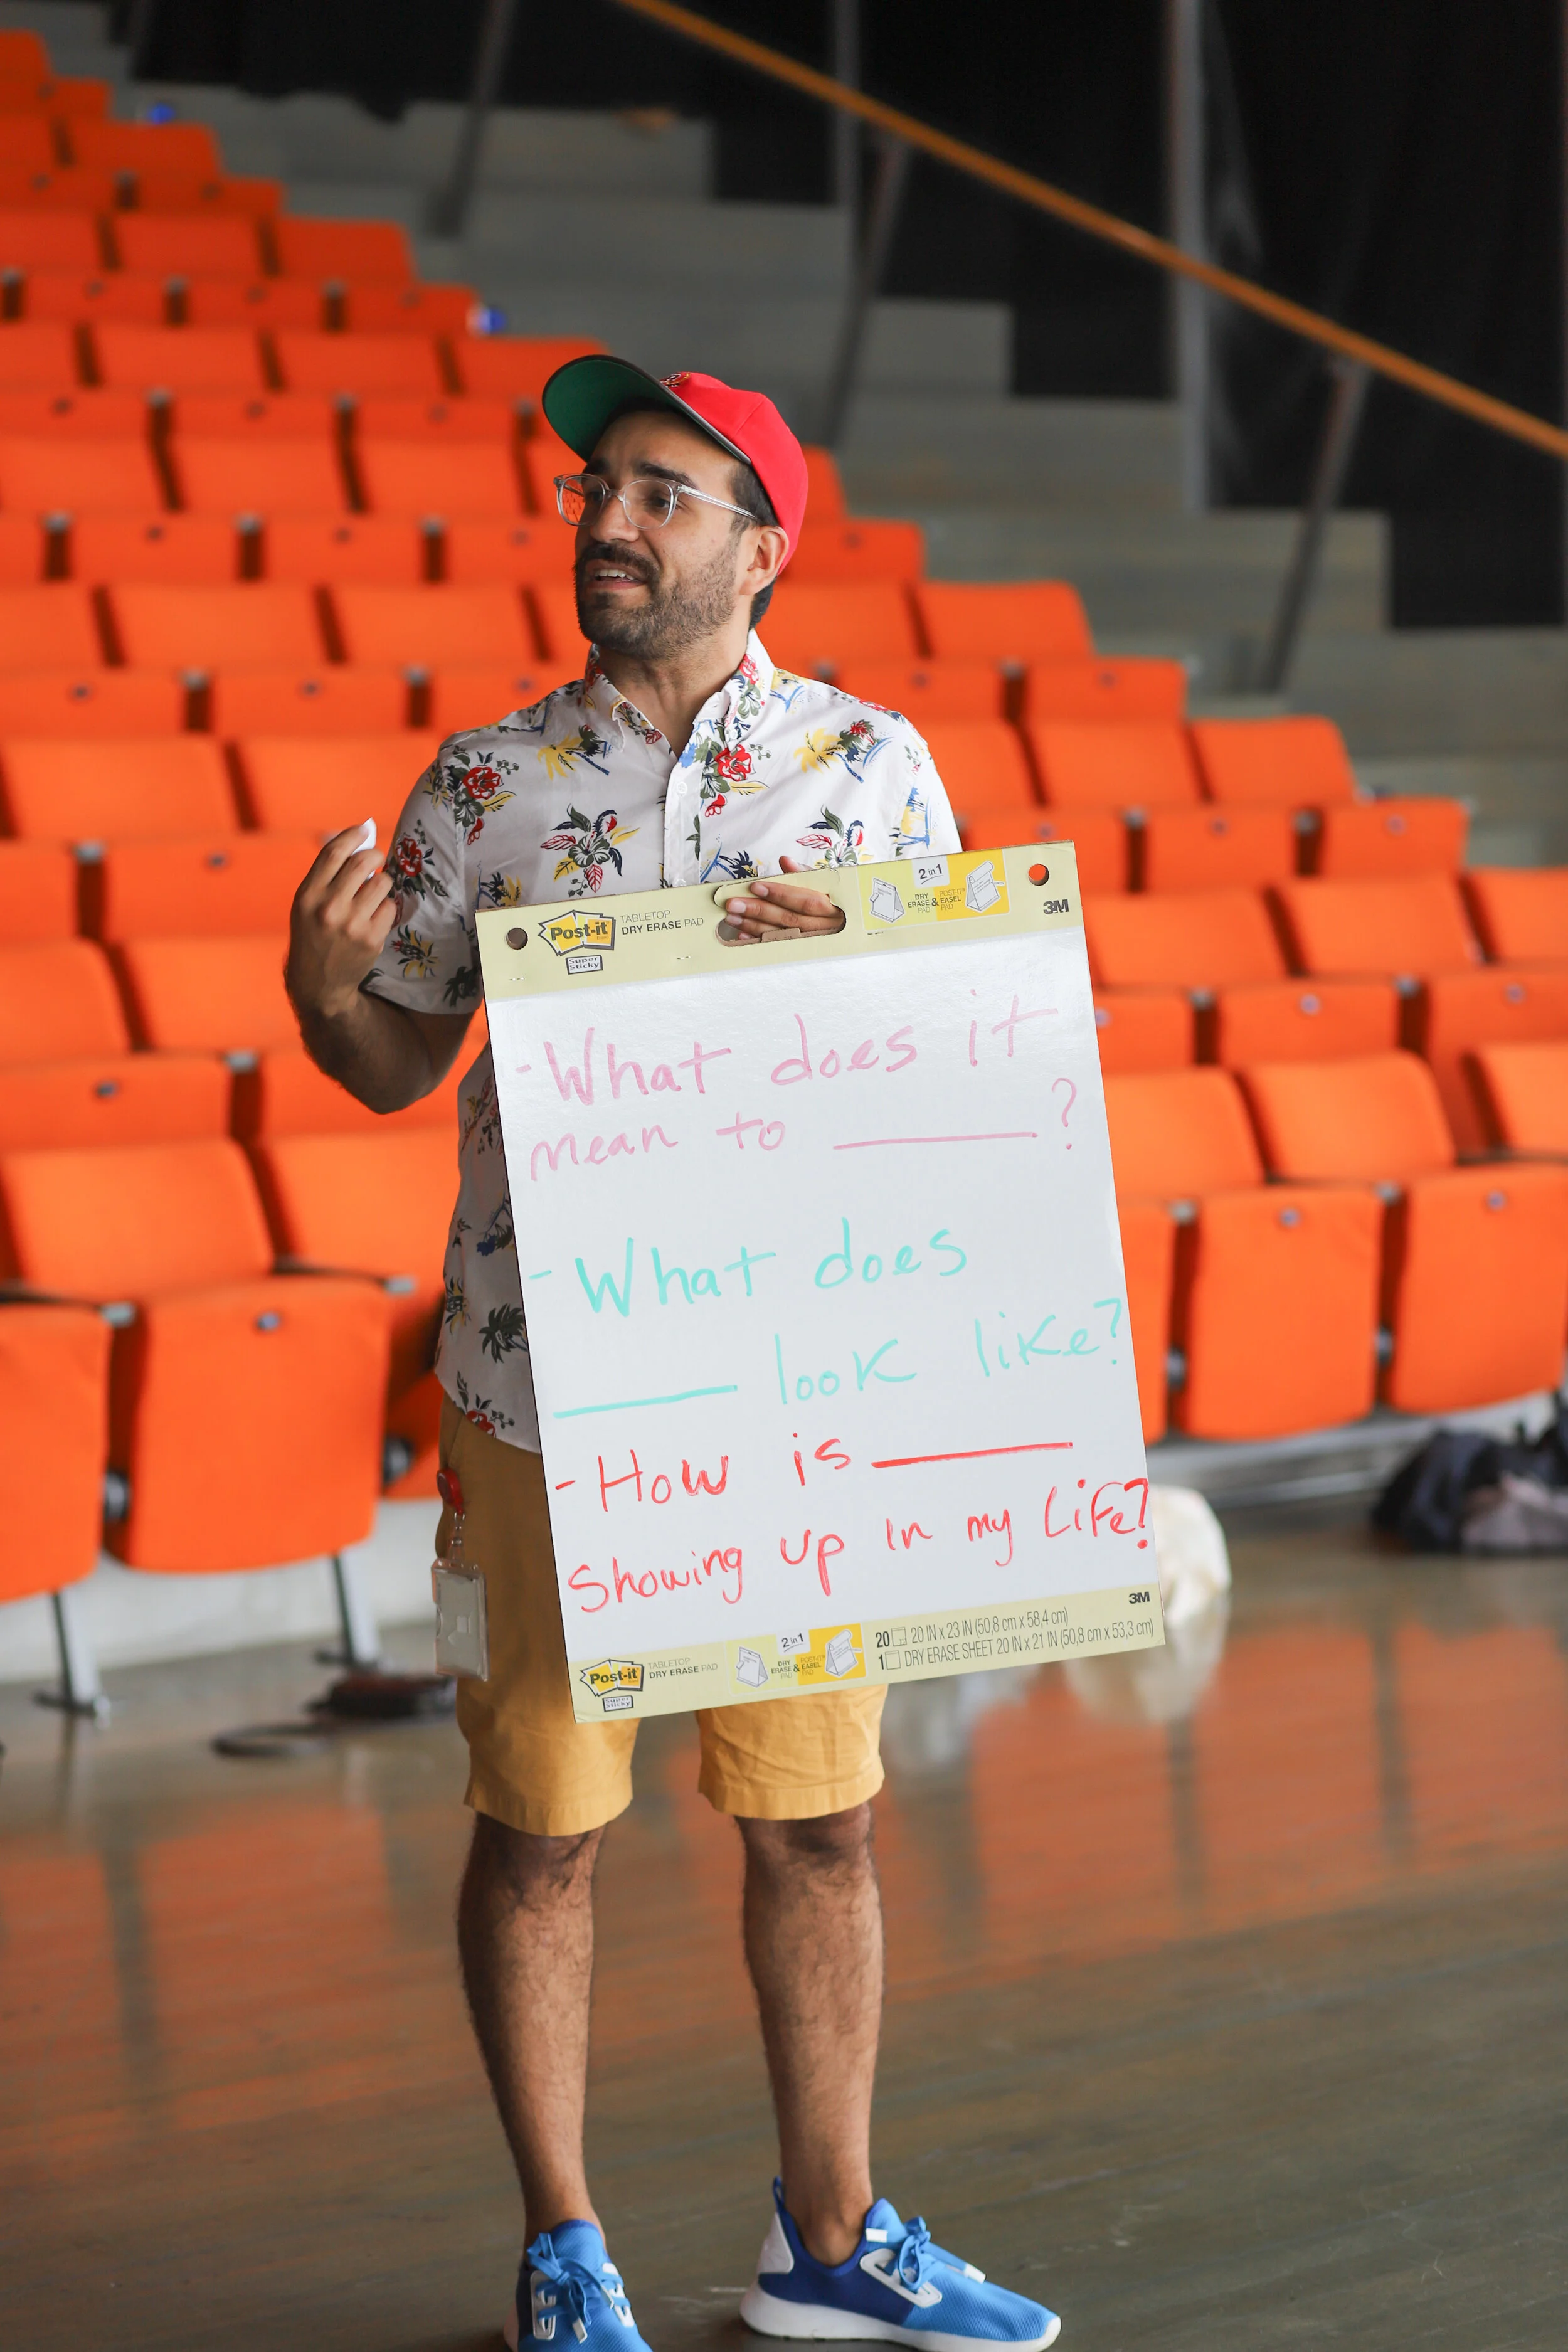 Post-it
Super Sticky
TABLETOP
DRY ERASE PAD
2 in 1
DRY ERASE PAD & POST-IT EASEL PAD
3M
- What does it
mean to ______?
- What does
______ look like?
- How is ______
Showing up in my Life?
3M
Post-it
Super Sticky
TABLETOP
DRY ERASE PAD
2 in 1
DRY ERASE PAD & POST-IT EASEL PAD
20 20 IN x 23 IN (50,8 cm x 58,4 cm)
1 DRY ERASE SHEET 20 IN x 21 IN (50,8 cm x 53,3 cm)